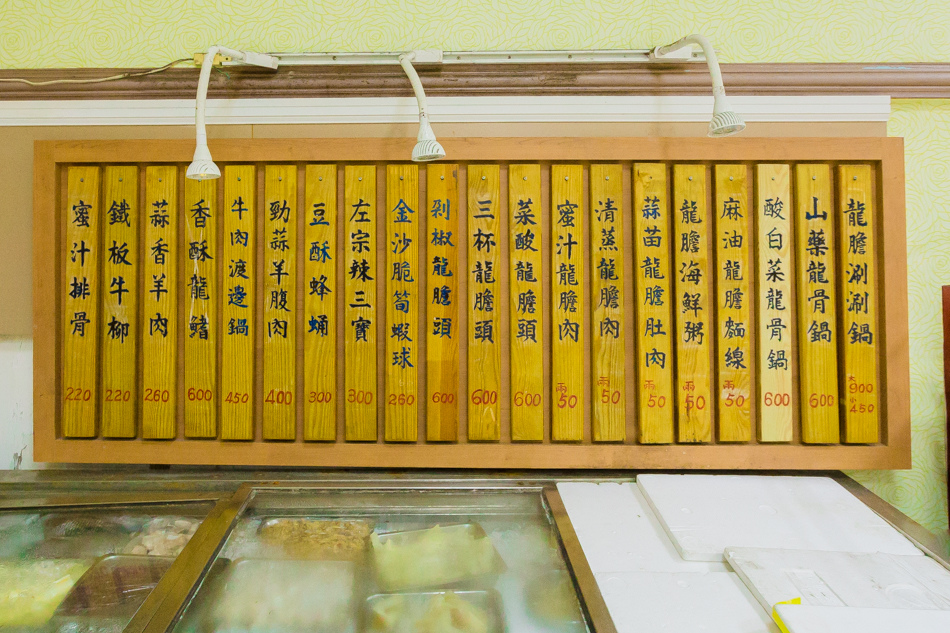 龍膽涮涮鍋 大900 小450
山藥龍骨鍋 600
酸白菜龍骨鍋 600
麻油龍膽麵線 兩50
龍膽海鮮粥 兩50
蒜苗龍膽肚肉 兩50
清蒸龍膽肉 兩50
蜜汁龍膽肉 兩50
菜酸龍膽頭 600
三杯龍膽頭 600
剁椒龍膽頭 600
金沙脆筍蝦球 260
左宗辣三寶 300
豆酥蜂蛹 300
勁蒜羊腹肉 400
牛肉渡邊鍋 450
香酥龍鰭 600
蒜香羊肉 260
鐵板牛柳 220
蜜汁排骨 220